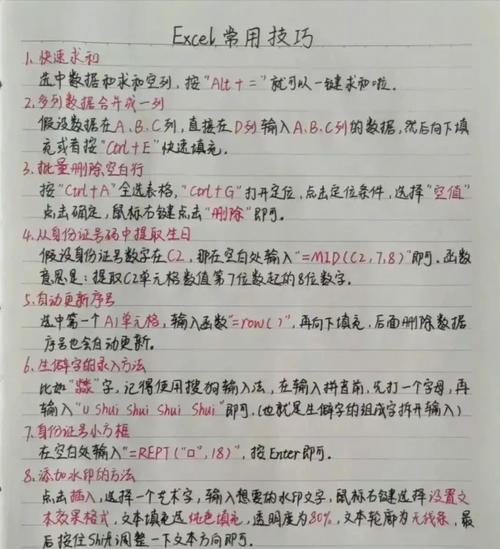 Excel 常用技巧
1.快速求和
选中数据和求和空列，按“Alt + =”就可以一键求和啦。
2.多列数据合并成一列
假设数据在A、B、C列，直接在D列输入A、B、C列的数据，然后向下填
充或者按“Ctrl+E”快速填充。
3.批量删除空白行
按“Ctrl+A”全选表格，“Ctrl+G”打开定位，点击定位条件，选择“空值”
点击确定，鼠标右键点击“删除”即可。
4.从身份证号码中提取生日
假设身份证号数字在C2，那在空白处输入“=MID(C2,7,8)”即可。函数
意思是：提取C2单元格数值第7位数起的8位数字。
5.自动更新序号
选中第一个A1单元格，输入函数“=row()”，再向下填充，后面删除数据
序号也会自动更新。
6.生僻字的录入方法
比如“㵘”字，记得使用搜狗输入法，在输入拼音前，先打一个字母，再
输入“U Shui Shui Shui Shui”即可.(也就是生僻字的组成字拆开输入)
7.身份证号小方框
在空白处输入“=REPT("□",18)”，按Enter即可.
8.添加水印的方法
点击插入，选择一个艺术字，输入想要的水印文字，鼠标右键选择设置文
本效果格式，文本填充选纯色填充，透明度为80%，文本轮廓为无线条，最
后按住Shift调整一下文本方向即可.